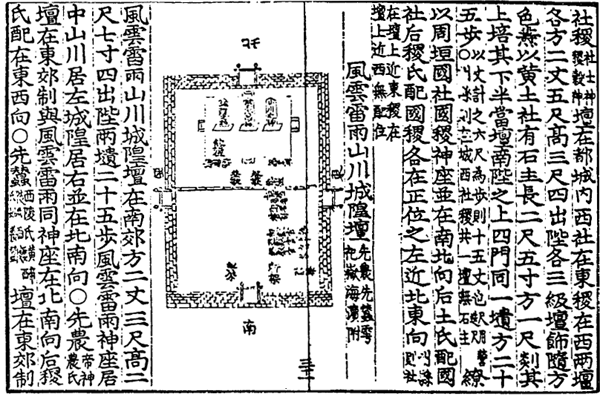 社稷社土神稷穀神壇在都城內西社在東稷在西兩壇
各方二丈五尺高三尺四出陛各三級壇飾隨方
色燾以黃土社有石主長二尺五寸方一尺剡其
上培其下半當壇南陛之上四門同一壝方二十
五步以丈計之六尺爲步則十五丈也尺用營城西社稷共一壇無石主繚
以周垣國社國稷神座並在南北向后土氏配國
社后稷氏配國稷各在正位之左近北東向州縣則社
在壇上近東稷在
壇上近西無配位
風雲雷雨山川城隍壇先農先蠶雩祀嶽海瀆附
北
南
風雲雷雨山川城隍壇在南郊方二丈三尺高二
尺七寸四出陛兩壝二十五步風雲雷雨神座居
中山川居左城隍居右並在北南向○先農帝神農氏
壇在東郊制與風雲雷雨同神座在北南向后稷
氏配在東西向○先蠶西陵氏壇在東郊制